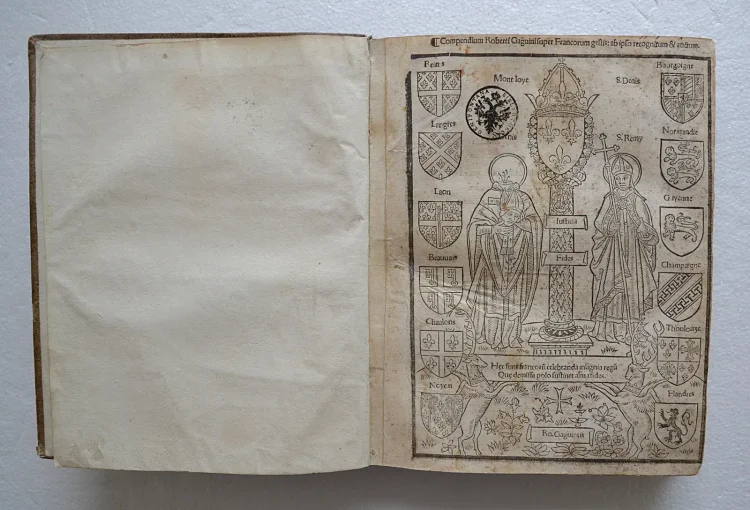 Compendium Roberti Gaguini super Francorum gestis: ab ipso recognitum & auctum.
Reins
Mont Ioye
S. Denis
Bourgoigne
Langres
S. Remy
Normandie
Laon
Iusticia
Guyenne
Beauuais
Fides
Champaigne
Chaalons
Thoulouze
Hec sunt francorū celebranda insignia regū
Que demissa polo sustinet alma fides.
Noyon
Flandres
Ro. Gaguinus